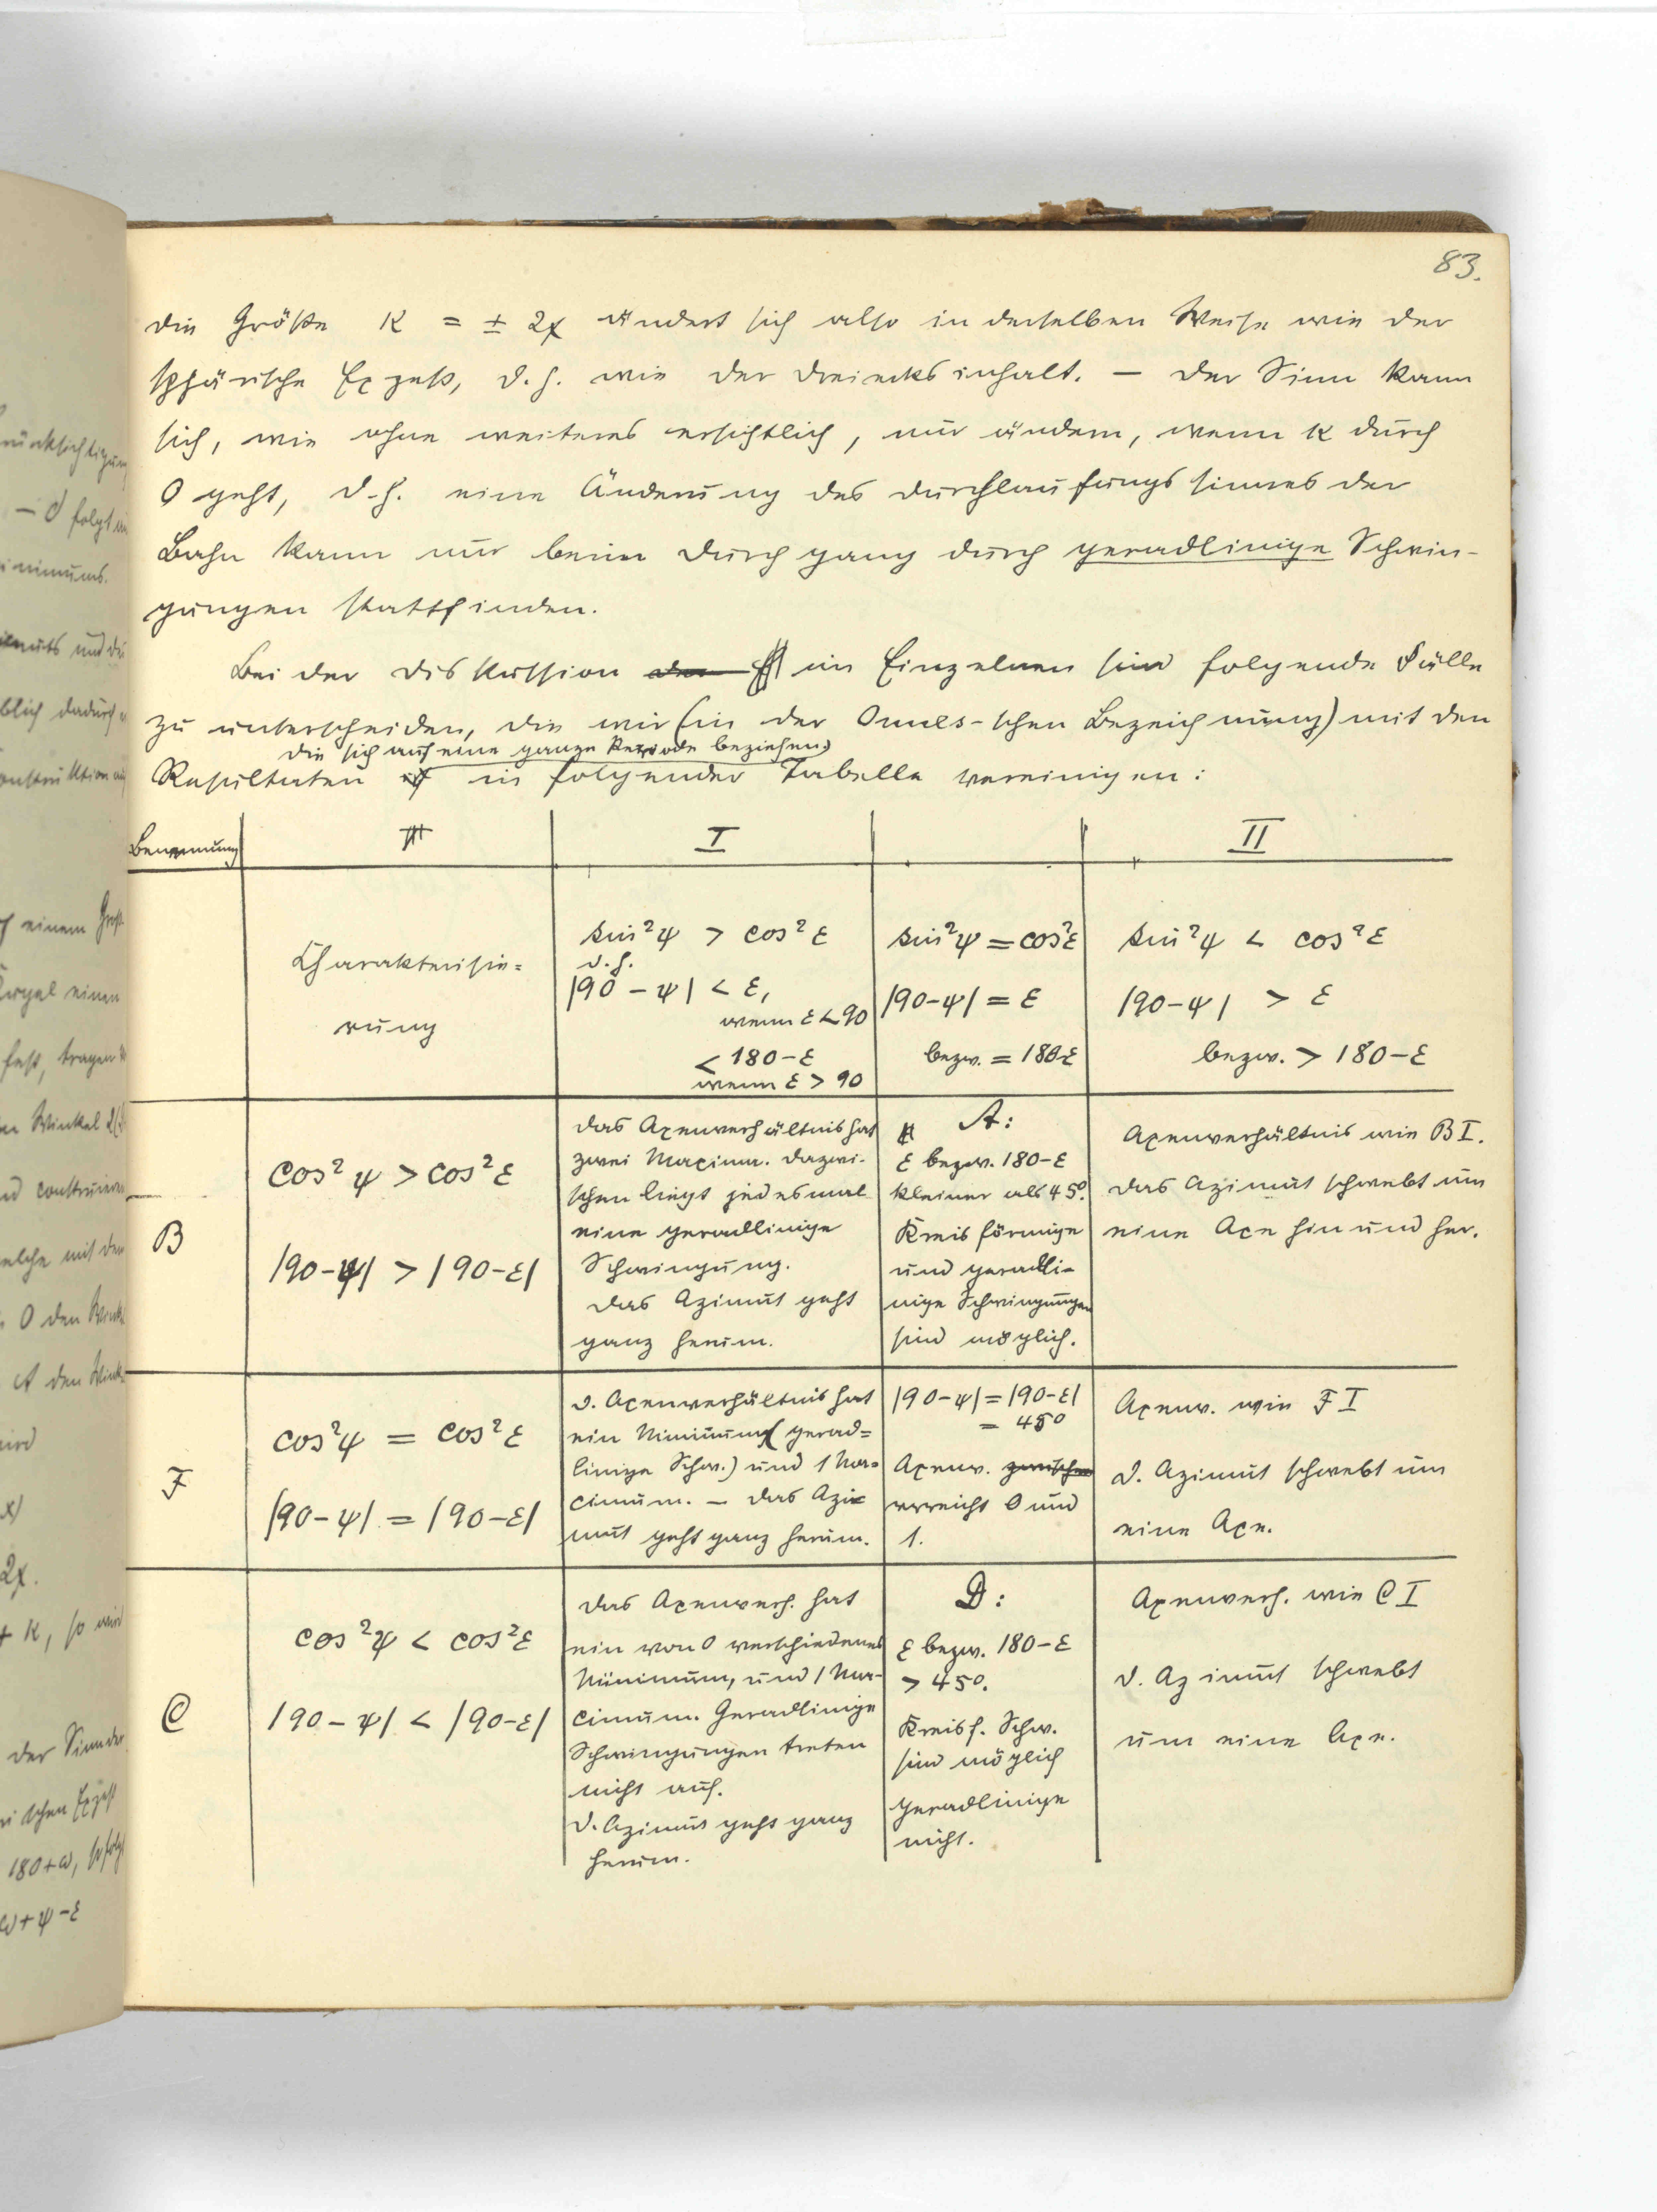 83.
die Größe K = ± 2χ ändert sich also in derselben Weise wie der
sphärische Exzeß, d.h. wie der Dreiecksinhalt. — Der Sinn kann
sich, wie ohne weiteres ersichtlich, nur ändern, wenn K durch
0 geht, d.h. eine Änderung des Durchlaufungssinnes der
Bahn kann nur beim Durchgang durch geradlinige Schwin-
gungen stattfinden.
Bei der Diskussion der im Einzelnen sind folgende Fälle
zu unterscheiden, die wir (in der Omnes-schen Bezeichnung) mit den
die sich auf eine ganze Periode beziehen,
Resultaten in folgender Tabelle vereinigen:
Benennung
I
II
Charakterisie-
rung
sin²ψ > cos²ε
d.h.
|90 − ψ| < ε,
wenn ε < 90
< 180−ε
wenn ε > 90
sin²ψ = cos²ε
|90−ψ| = ε
bezw. = 180−ε
sin²ψ < cos²ε
|90−ψ| > ε
bezw. > 180−ε
B
cos²ψ > cos²ε
|90−ψ| > |90−ε|
Das Axenverhältnis hat
zwei Maxima. Dazwi-
schen liegt jedesmal
eine geradlinige
Schwingung.
Das Azimut geht
ganz herum.
A:
ε bezw. 180−ε
kleiner als 45°.
Kreisförmige
und geradli-
nige Schwingungen
sind möglich.
Axenverhältnis wie B I.
Das Azimut schwebt um
eine Axe hin und her.
F
cos²ψ = cos²ε
|90−ψ| = |90−ε|
d. Axenverhältnis hat
ein Minimum (gerad-
linige Schw.) und 1 Ma-
ximum. — Das Azi-
mut geht ganz herum.
|90−ψ| = |90−ε|
= 45°
Axenv. zwischen
erreicht 0 und
1.
Axenv. wie F I
d. Azimut schwebt um
eine Axe.
C
cos²ψ < cos²ε
|90−ψ| < |90−ε|
Das Axenverh. hat
ein von 0 verschiedenes
Minimum, und 1 Ma-
ximum. Geradlinige
Schwingungen treten
nicht auf.
d. Azimut geht ganz
herum.
D:
ε bezw. 180−ε
> 45°.
Kreisf. Schw.
sind möglich
geradlinige
nicht.
Axenverh. wie C I
d. Azimut schwebt
um eine Axe.